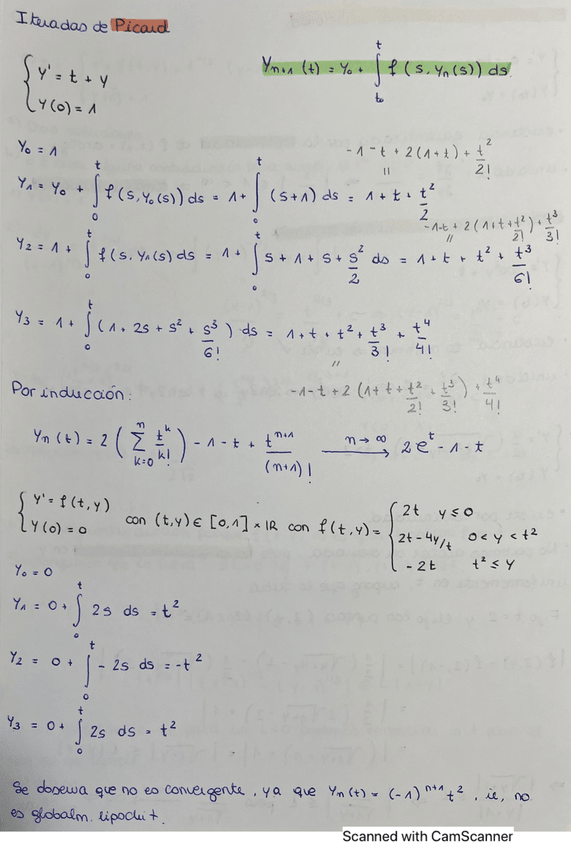 Iteradas de Picard
{ y' = t + y
{ y(0) = 1
y_{n+1}(t) = y_0 + ∫_{t_0}^{t} f(s, y_n(s)) ds
y_0 = 1
-1-t + 2(1+t) + t^2/2!
y_1 = y_0 + ∫_0^t f(s, y_0(s)) ds = 1 + ∫_0^t (s+1) ds = 1 + t + t^2/2
-1-t + 2(1+t+t^2/2!) + t^3/3!
y_2 = 1 + ∫_0^t f(s, y_1(s) ds = 1 + ∫_0^t s + 1 + s + s^2/2 ds = 1 + t + t^2 + t^3/6!
y_3 = 1 + ∫_0^t (1 + 2s + s^2 + s^3/6!) ds = 1 + t + t^2 + t^3/3! + t^4/4!
-1-t + 2(1+t+t^2/2! + t^3/3!) + t^4/4!
Por inducción:
y_n(t) = 2(∑_{k=0}^{n} t^k/k!) - 1 - t + t^{n+1}/(n+1)! ⟶ n→∞ 2e^t - 1 - t
{ y' = f(t,y)
{ y(0) = 0
con (t,y) ∈ [0,1] × IR con f(t,y) = { 2t y ≤ 0
2t - 4y/t 0 < y < t^2
-2t t^2 ≤ y
y_0 = 0
y_1 = 0 + ∫_0^t 2s ds = t^2
y_2 = 0 + ∫_0^t -2s ds = -t^2
y_3 = 0 + ∫_0^t 2s ds = t^2
Se observa que no es convergente, ya que y_n(t) = (-1)^{n+1} t^2, ie, no
es globalm. lipschit.
Scanned with CamScanner